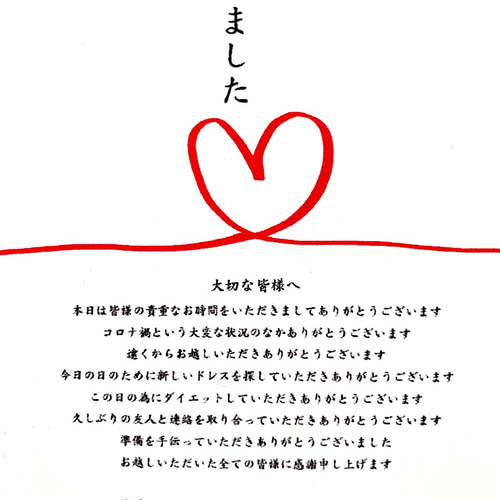 ました
大切な皆様へ
本日は皆様の貴重なお時間をいただきましてありがとうございます
コロナ禍という大変な状況のなかありがとうございます
遠くからお越しいただきありがとうございます
今日の日のために新しいドレスを探していただきありがとうございます
この日の為にダイエットしていただきありがとうございます
久しぶりの友人と連絡を取り合っていただきありがとうございます
準備を手伝っていただきありがとうございました
お越しいただいた全ての皆様に感謝申し上げます